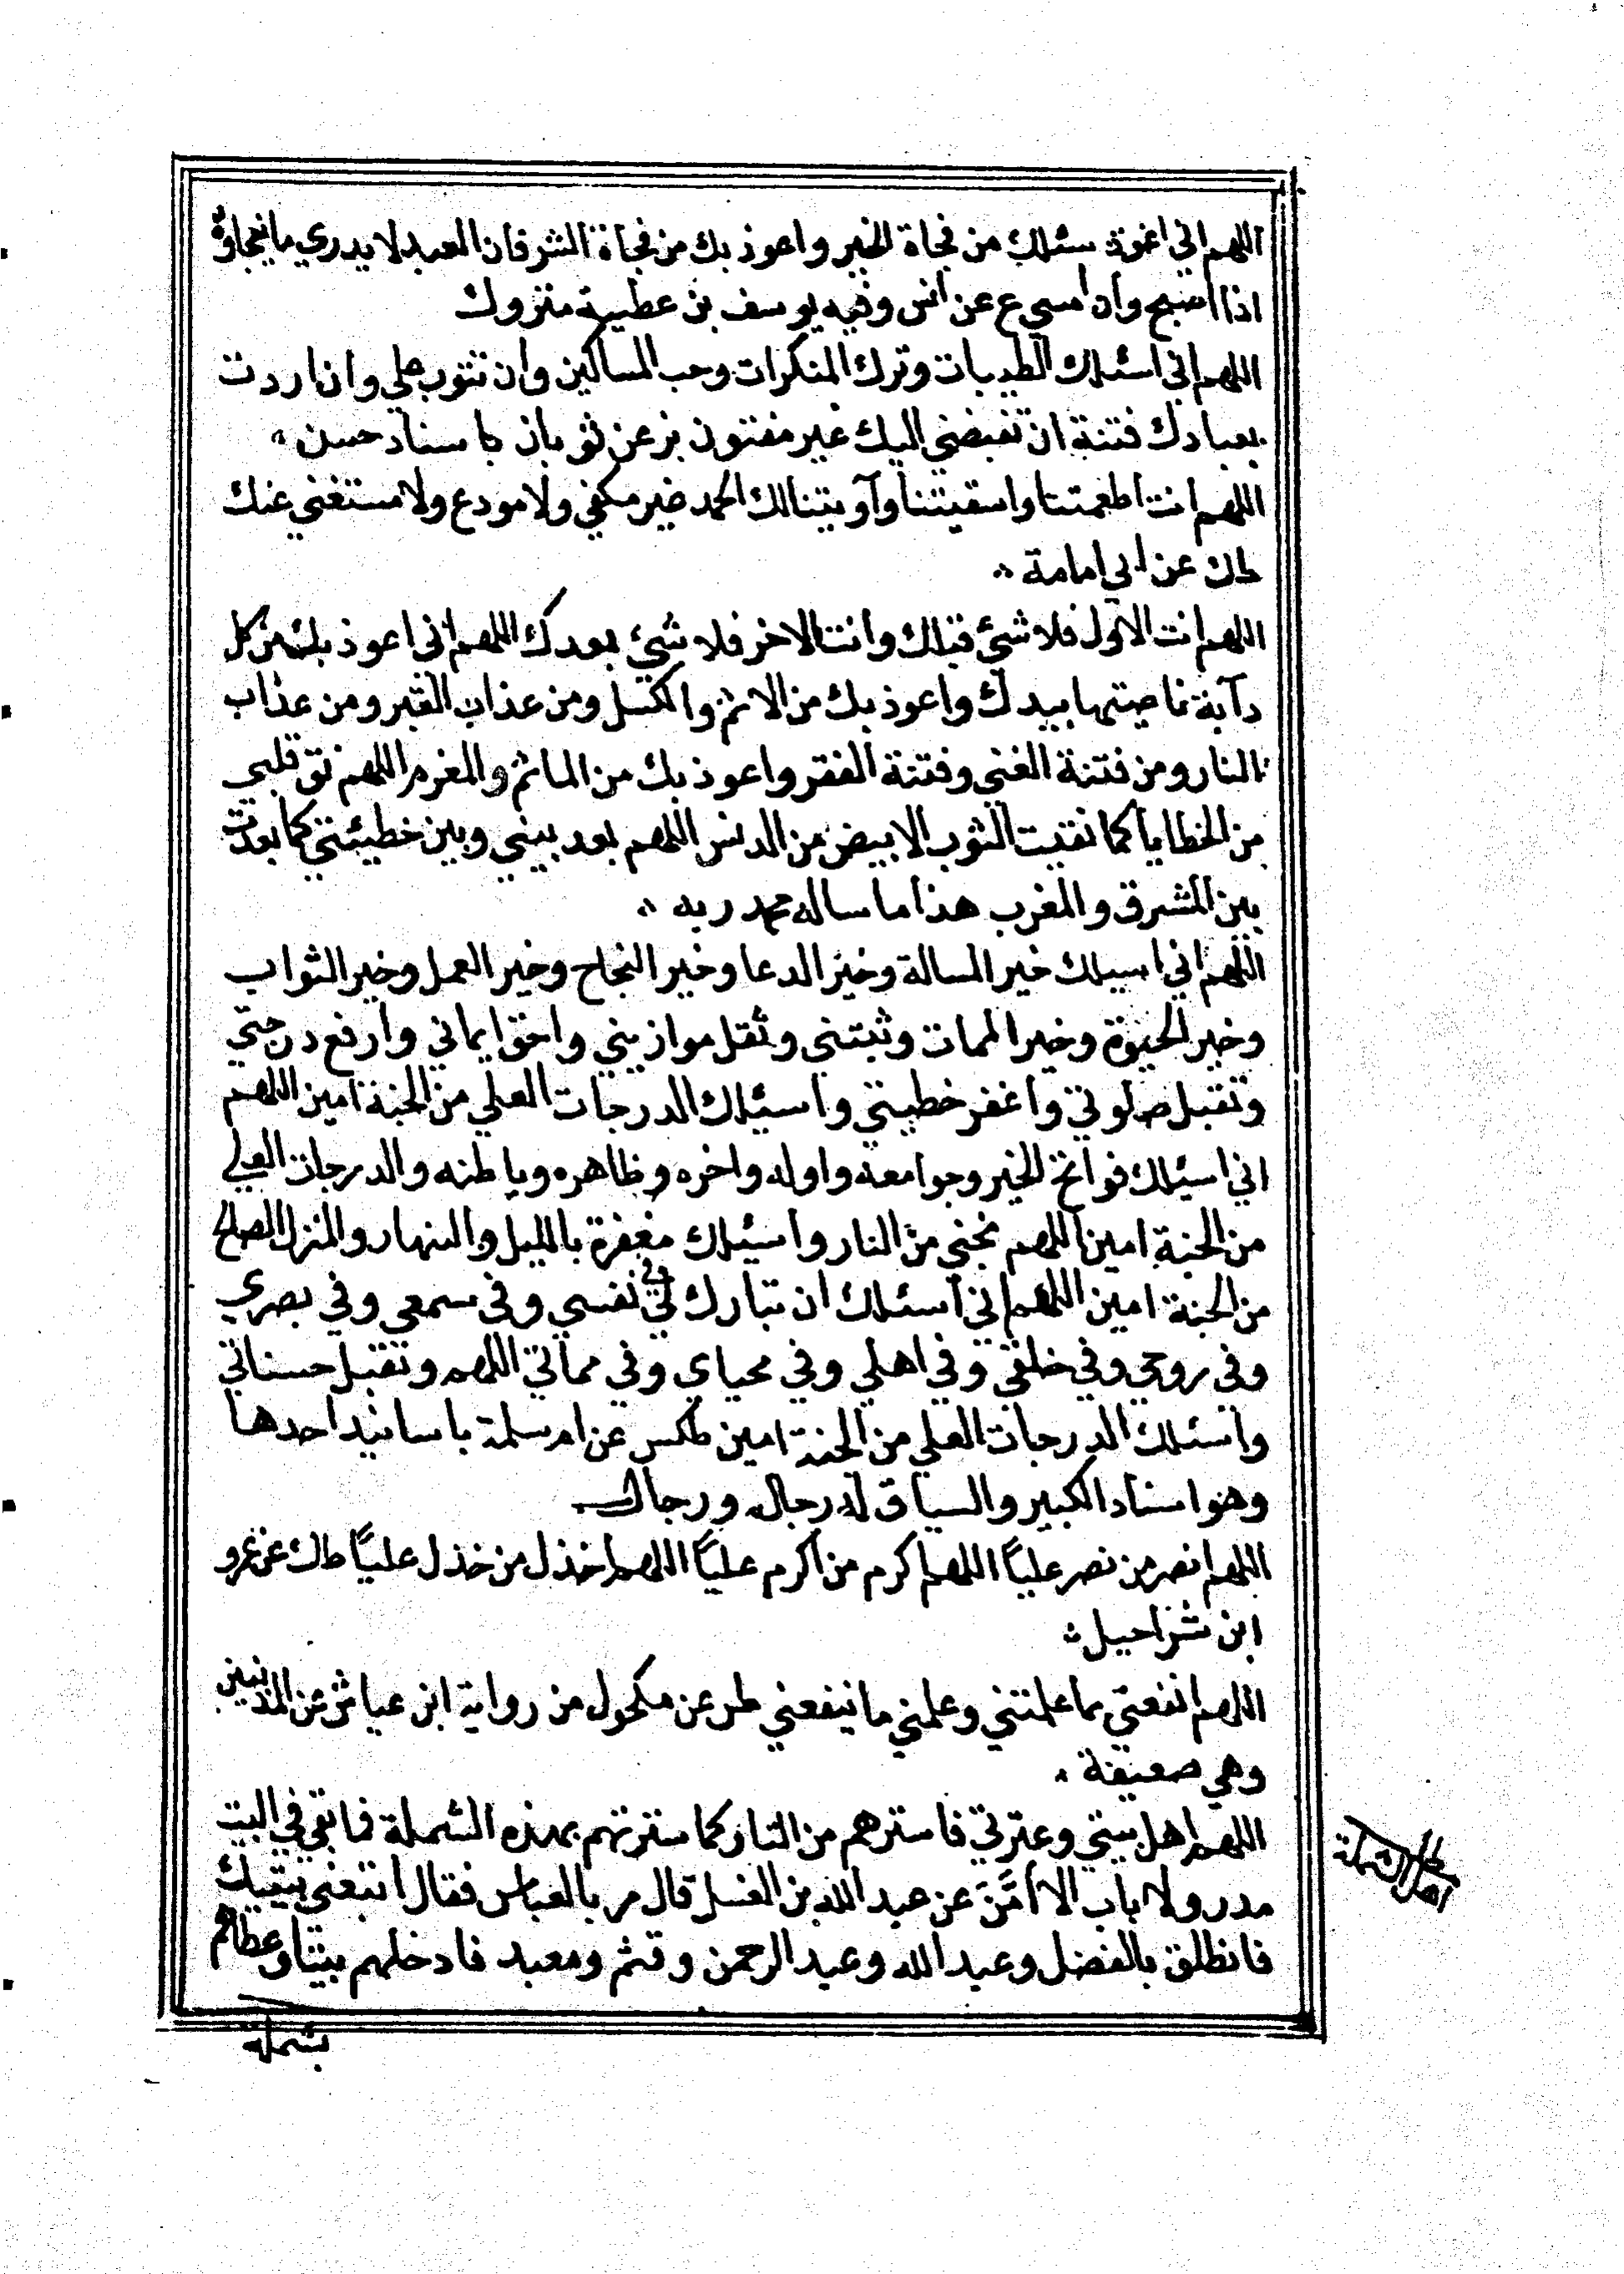 اللهم اني اعوذ سئلك من فجاة الخير واعوذ بك من فجأة الشر فان العبد لا يدري ما يفجاوه
اذا اصبح وان امسي ع عن انس وفيه يوسف بن عطية متروك
اللهم اني اسئلك الطيبات وترك المنكرات وحب المساكين وان تتوب علي وان اردت
بعبادك فتنة ان تقبضني اليك غير مفتون بز عن ثوبان باسناد حسن
اللهم انت اطعمتنا واسقيتنا وآويتنا لك الحمد غير مكفي ولا مودع ولا مستغني عنك
طك عن ابي امامة
اللهم انت الاول فلا شئ قبلك وانت الاخر فلا شئ بعدك اللهم اني اعوذ بك من كل
دآبة ناصيتها بيدك واعوذ بك من الاثم والكسل ومن عذاب القبر ومن عذاب
النار ومن فتنة الغني وفتنة الفقر واعوذ بك من الماثم والمغرم اللهم نق قلبي
من الخطايا كما نقيت الثوب الابيض من الدنس اللهم بعد بيني وبين خطيئتي كما بعدت
بين المشرق والمغرب هذا ما ساله محمد ربه
اللهم اني اسيلك خير المسالة وخير الدعا وخير النجاح وخير العمل وخير الثواب
وخير الحيوة وخير الممات وثبتني وثقل موازيني واحق ايماني وارفع درجتي
وتقبل صلوتي واغفر خطيتي واسيئلك الدرجات العلي من الجنة امين اللهم
اني اسيئلك فواتح الخير وجوامعه واوله واخره وظاهره وباطنه والدرجات العلي
من الجنة امين اللهم نجني من النار واسيئلك مغفرة بالليل والنهار والمنزل الصالح
من الجنة امين اللهم اني اسئلك ان تبارك لي في نفسي وفي سمعي وفي بصري
وفي روحي وفي خلقي وفي اهلي وفي محياي وفي مماتي اللهم وتقبل حسناتي
واسئلك الدرجات العلي من الجنة امين طكس عن ام سلمة باسانيد احدها
وهو اسناد الكبير والسياق له رجاله ورجال
اللهم انصر من نصر عليًا اللهم اكرم من اكرم عليًا اللهم اخذل من خذل عليًا طك عن عمرو
ابن شراحيل
اللهم انفعني بما علمتني وعلمني ما ينفعني طس عن مكحول من رواية ابن عياش عن المدنيين
وهي ضعيفة
اللهم اهل بيتي وعترتي فاسترهم من النار كما سترتهم بهذه الشملة فما بقي في البيت
مدر ولا باب الا أمَّنَ عن عبد الله بن الغسل قال مر بالعباس فقال اتبعني ببنيك
فانطلق بالفضل وعبد الله وعبد الرحمن وقثم ومعبد فادخلهم بيتا وغطاهم
بشملة
اهل الشملة